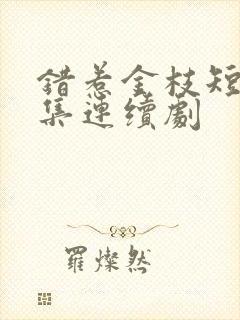 錯惹金枝短
集連續劇
羅燦然